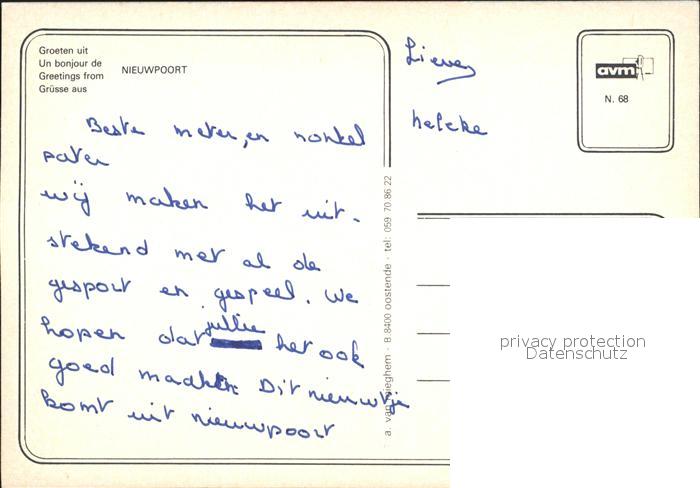 Groeten uit
Un bonjour de
Greetings from
Grüsse aus
NIEUWPOORT
Beste meter, en nonkel
pater
wij maken het uit-
stekend met al de
gesport en gespeel. We
hopen dat jullie het ook
goed maken Dit nieuwtje
komt uit nieuwpoort
Lieve
Heleke
avm
N. 68
a. van mieghem - B 8400 oostende - tel: 059 70 86 22
privacy protection
Datenschutz